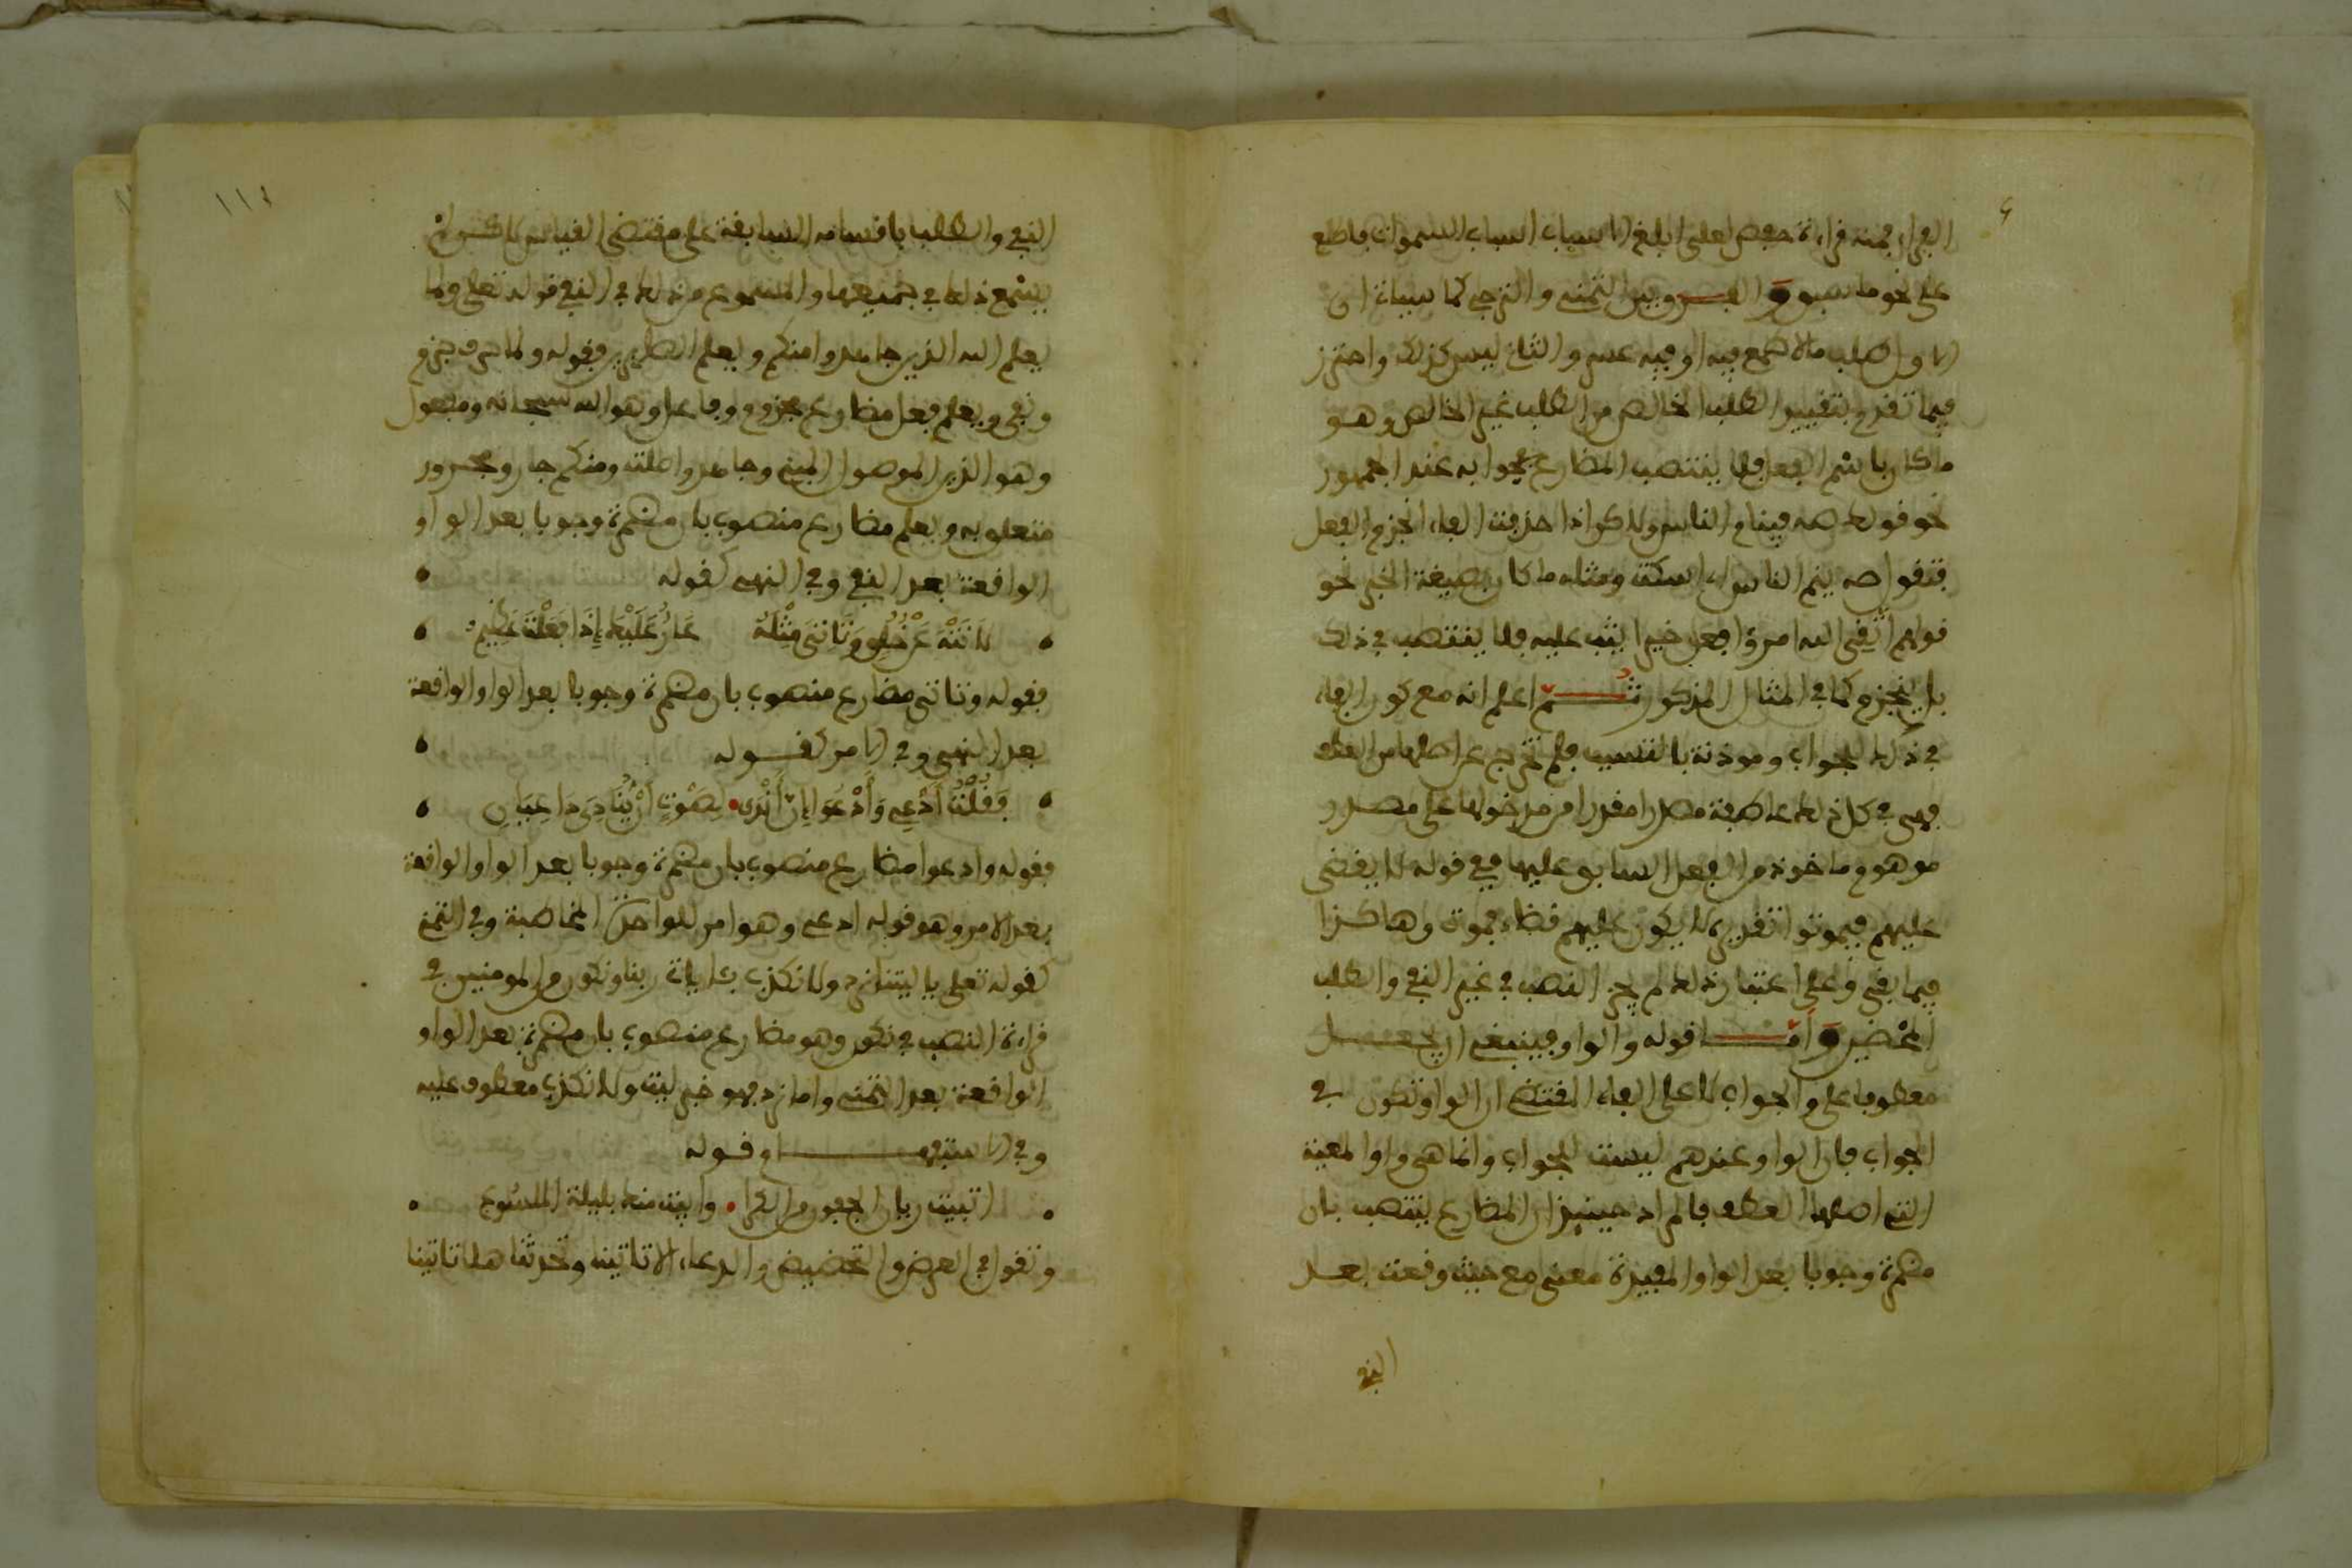 الفراء فمنه قراءة حفص لعلى ابلغ الاسباب اسباب السموات فاطلع
على نحو ما سبق والفرق بين التمني والترجي كما سياتي ان
الاول طلب ما لا طمع فيه او فيه عسر والثاني ليس كذلك واحترز
فيما تقدم بتقييد الطلب الخالص من الطلب غير الخالص وهو
ما كان باسم الفعل فلا ينتصب المضارع بجوابه عند الجمهور
نحو قولك صه فينام الناس ولاكن اذا حذفت الفاء انجزم الفعل
فتقول صه ينم الناس اي اسكت ومثله ما كان بصيغة الخبر نحو
قولهم اتقى الله امرؤ فعل خيرا يثب عليه فلا ينتصب في ذلك
بل ينجزم كما في المثال المذكور ثم اعلم انه مع كون الفاء
في ذلك للجواب وموذنة بالتسبب فلم تخرج عن اصلها من العطف
فهي في كل ذلك عاطفة مصدرا مقدرا من مدخولها على مصدر
موهوم ماخوذ من الفعل السابق عليها ففي قوله لا يقضى
عليهم فيموتوا تقديره لا يكون عليهم قضاء فموت وهاكذا
فيما بقي وعلى اعتبار ذلك لم يجز النصب في غير النفي والطلب
المحضين واما قوله والواو فينبغي ان يجعل
معطوفا على والجواب لا على الفاء المقتضي ان الواو تكون في
الجواب فان الواو عندهم ليست للجواب وانما هي واو المعية
التي اصلها العطف فالمراد حينئذ ان المضارع ينتصب بان
مضمرة وجوبا بعد الواو المفيدة معنى مع حيث وقعت بعد
النفي
١١٤
النفي والطلب باقسامه السابقة على مقتضى القياس لاكن لم
يسمع ذلك في جميعها والمسموع من ذلك في النفي قوله تعلى ولما
يعلم الله الذين جاهدوا منكم ويعلم الصابرين فقوله ولما حرف جزم
ونفي ويعلم فعل مضارع مجزوم وفاعل وهو الله سبحانه ومفعول
وهو الذين الموصول المبني وجاهدوا صلته ومنكم جار ومجرور
متعلق به ويعلم مضارع منصوب بان مضمرة وجوبا بعد الواو
الواقعة بعد النفي وفي النهي كقوله
لَا تَنْهَ عَنْ خُلُقٍ وَتَاتِيَ مِثْلَهُ عَارٌ عَلَيْكَ إِذَا فَعَلْتَ عَظِيمُ
فقوله وتاتي مضارع منصوب بان مضمرة وجوبا بعد الواو الواقعة
بعد النهي وفي الامر كقوله
فَقُلْتُ ادْعِي وَأَدْعُوَ إِنَّ أَنْدَى لِصَوْتٍ أَنْ يُنَادِيَ دَاعِيَانِ
فقوله وادعوا مضارع منصوب بان مضمرة وجوبا بعد الواو الواقعة
بعد الامر وهو قوله ادعي وهو امر للواحدة المخاطبة وفي التمني
كقوله تعلى يا ليتنا نرد ولا نكذب بئايات ربنا ونكون من المومنين في
قراءة النصب في نكون وهو مضارع منصوب بان مضمرة بعد الواو
الواقعة بعد التمني واما نرد فهو خبر ليت ولا نكذب معطوف عليه
وفي الاستفهام قوله
اتبيت ريان الجفون من الكرا وابيت منك بليلة الملسوع
وتقول في العرض والتحضيض والدعاء الا تاتينا وتحدثنا هلا تاتينا